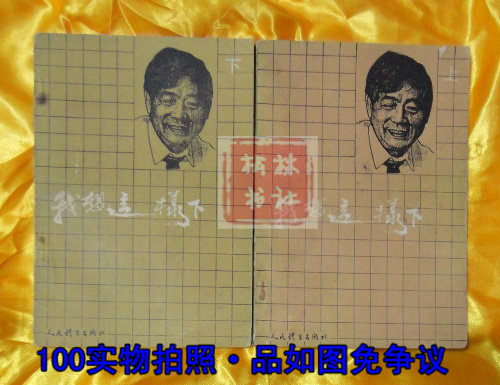 下
上
我想这一样下
我想这一样下
松林
书社
人民体育出版社
人民体育出版社
100实物拍照·品如图免争议